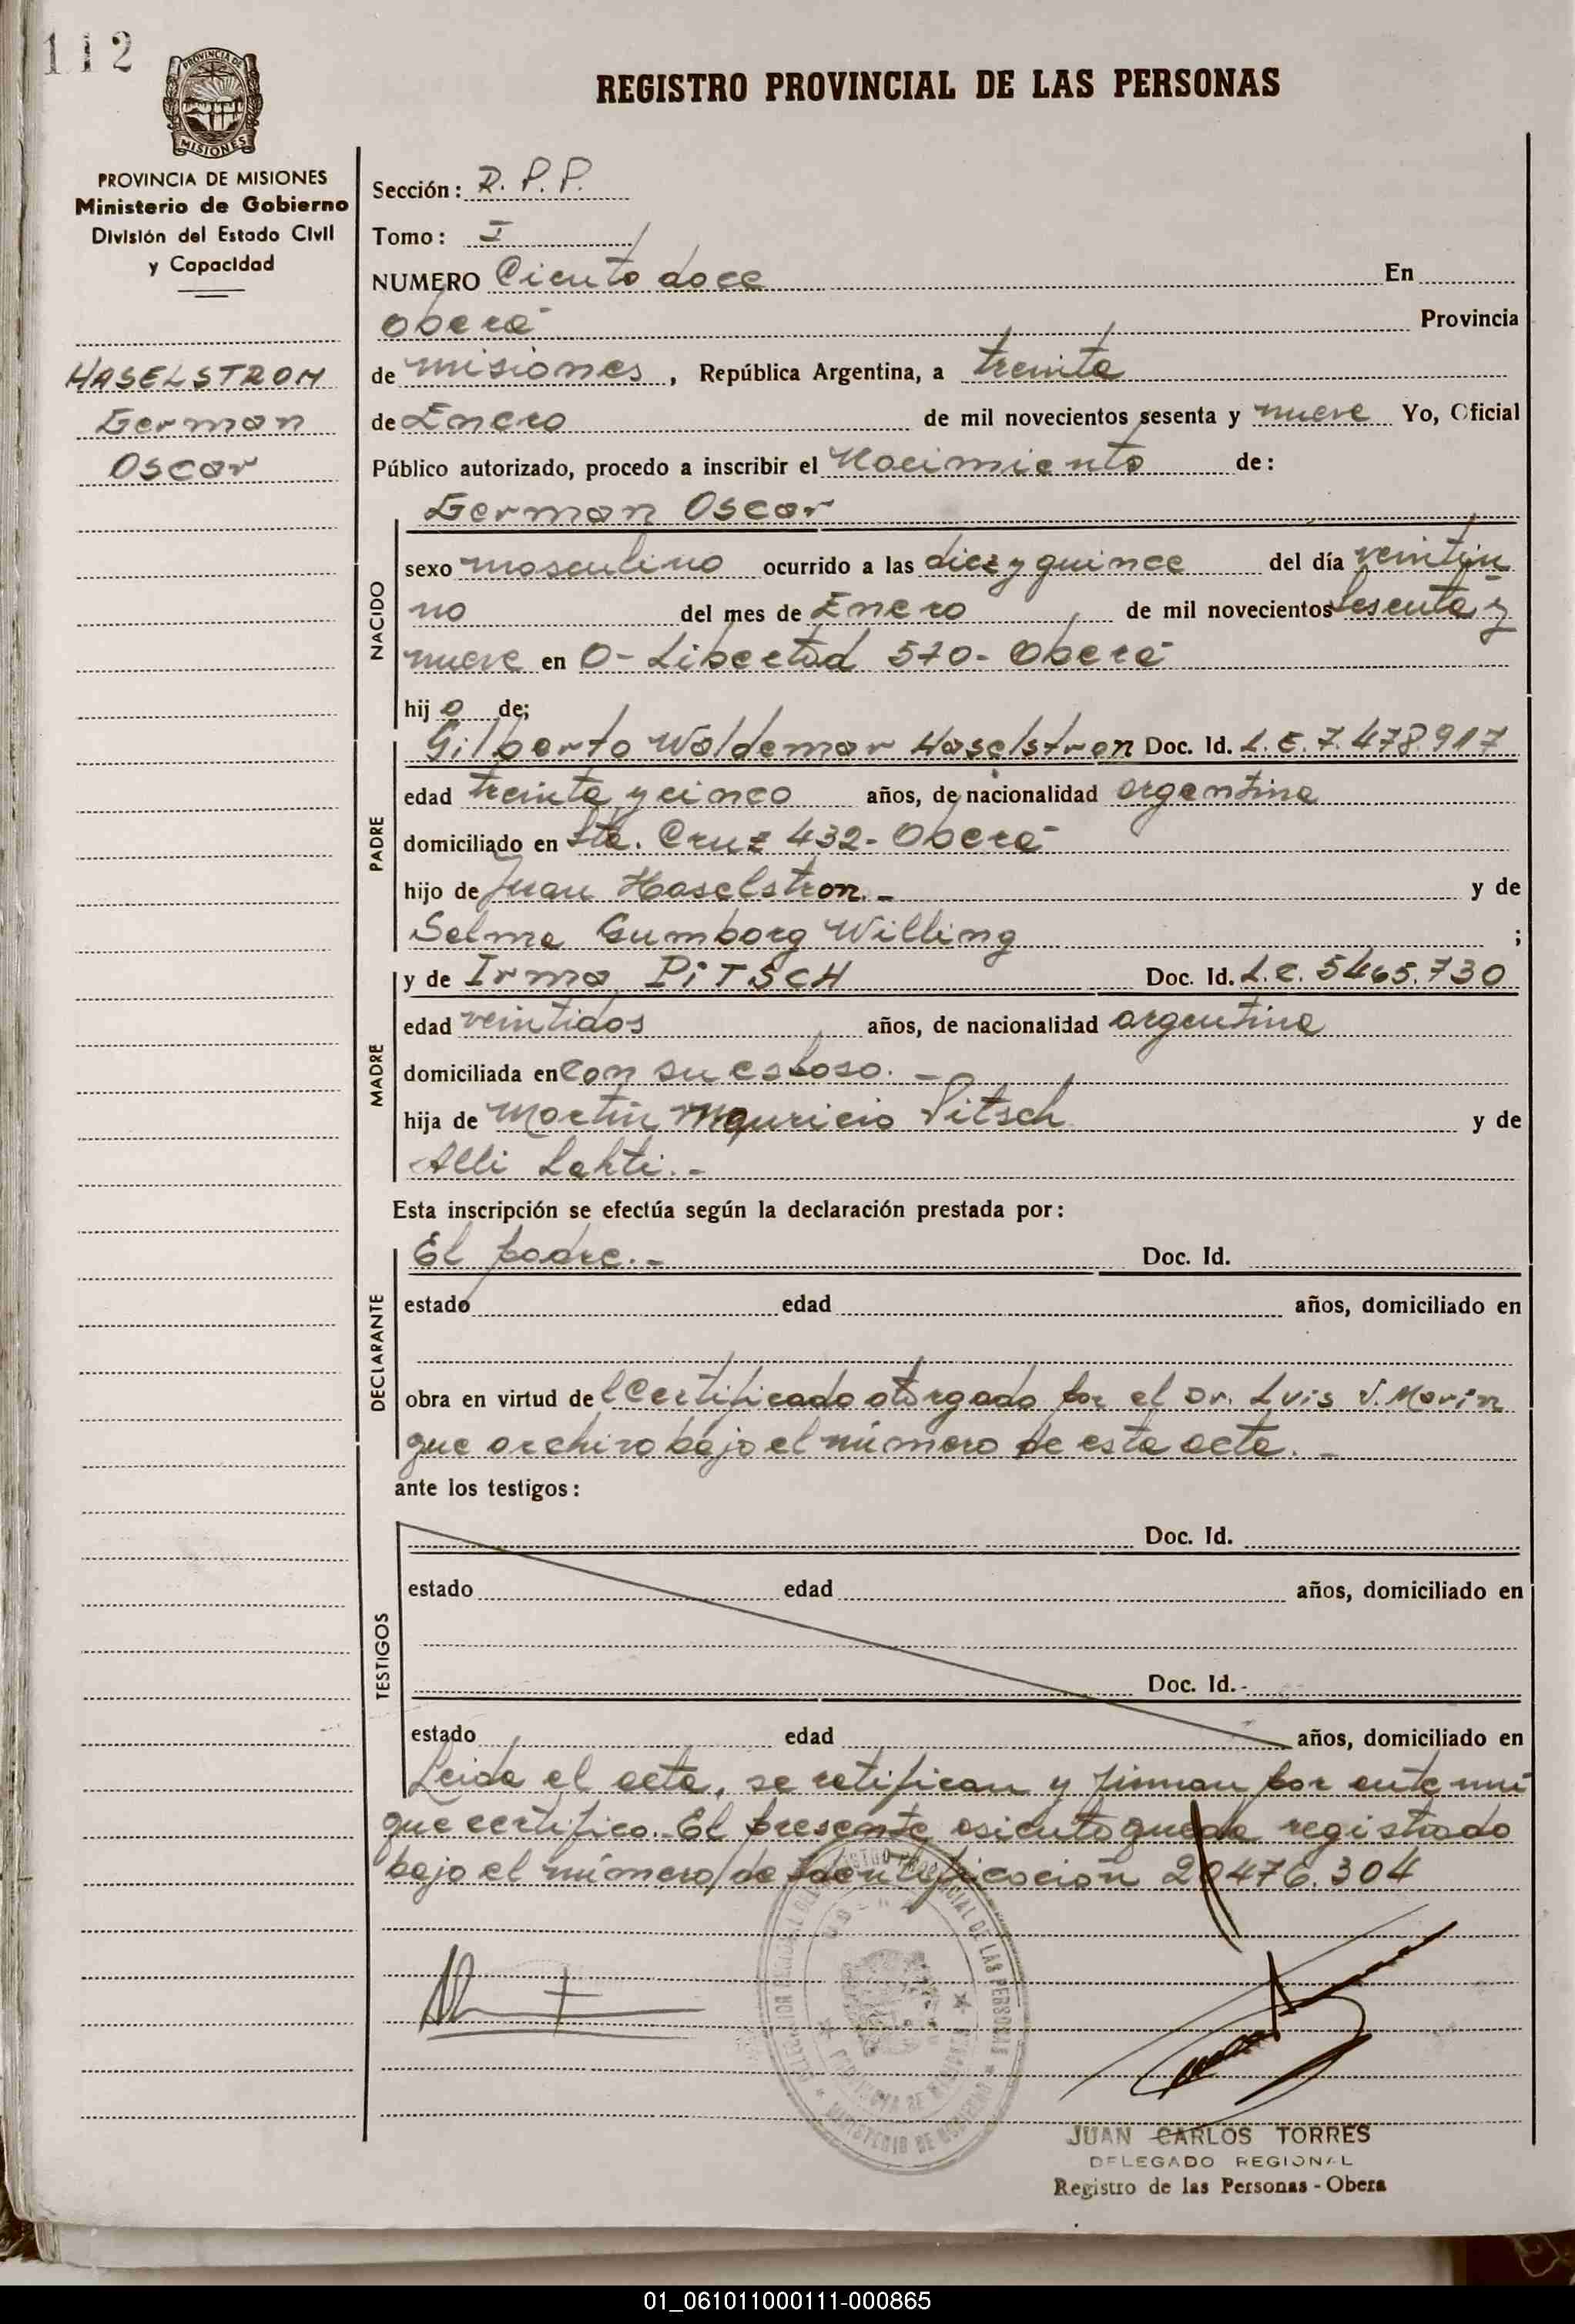 112
PROVINCIA DE
MISIONES
REGISTRO PROVINCIAL DE LAS PERSONAS
PROVINCIA DE MISIONES
Ministerio de Gobierno
División del Estado Civil
y Capacidad
HASELSTROM
German
Oscar
Sección: R. P. P.
Tomo: I
NUMERO Ciento doce En
Oberá Provincia
de misiones, República Argentina, a treinta
de Enero de mil novecientos sesenta y nueve Yo, Oficial
Público autorizado, procedo a inscribir el Nacimiento de:
German Oscar
NACIDO
sexo masculino ocurrido a las diez y quince del día veintiu
no del mes de Enero de mil novecientos sesenta y
nueve en O- Libertad 570- Oberá
hijo de;
PADRE
Gilberto Woldemar Haselstron Doc. Id. L.E. 7.478.917
edad treinta y cinco años, de nacionalidad argentina
domiciliado en Sta. Cruz 432- Oberá
hijo de Juan Haselstron.- y de
Selma Gumborg Willing ;
MADRE
y de Irma PiTSCH Doc. Id. L.C. 5465.730
edad veintidos años, de nacionalidad argentina
domiciliada en con su esposo.-
hija de Martin Mauricio Pitsch y de
Alli Lahti.-
Esta inscripción se efectúa según la declaración prestada por:
DECLARANTE
El padre.- Doc. Id.
estado edad años, domiciliado en
obra en virtud del Certificado otorgado por el Dr. Luis V. Marin
que archivo bajo el número de esta acta.-
ante los testigos:
TESTIGOS
Doc. Id.
estado edad años, domiciliado en
Doc. Id.-
estado edad años, domiciliado en
Leida el acta, se ratifican y firman por ante mi
que certifico.- El presente asiento queda registrado
bajo el número de Identificación 20476.304
REGISTRO PROVINCIAL DE LAS PERSONAS
PROVINCIA DE MISIONES
MINISTERIO DE GOBIERNO
JUAN CARLOS TORRES
DELEGADO REGIONAL
Registro de las Personas - Obera
01_061011000111-000865